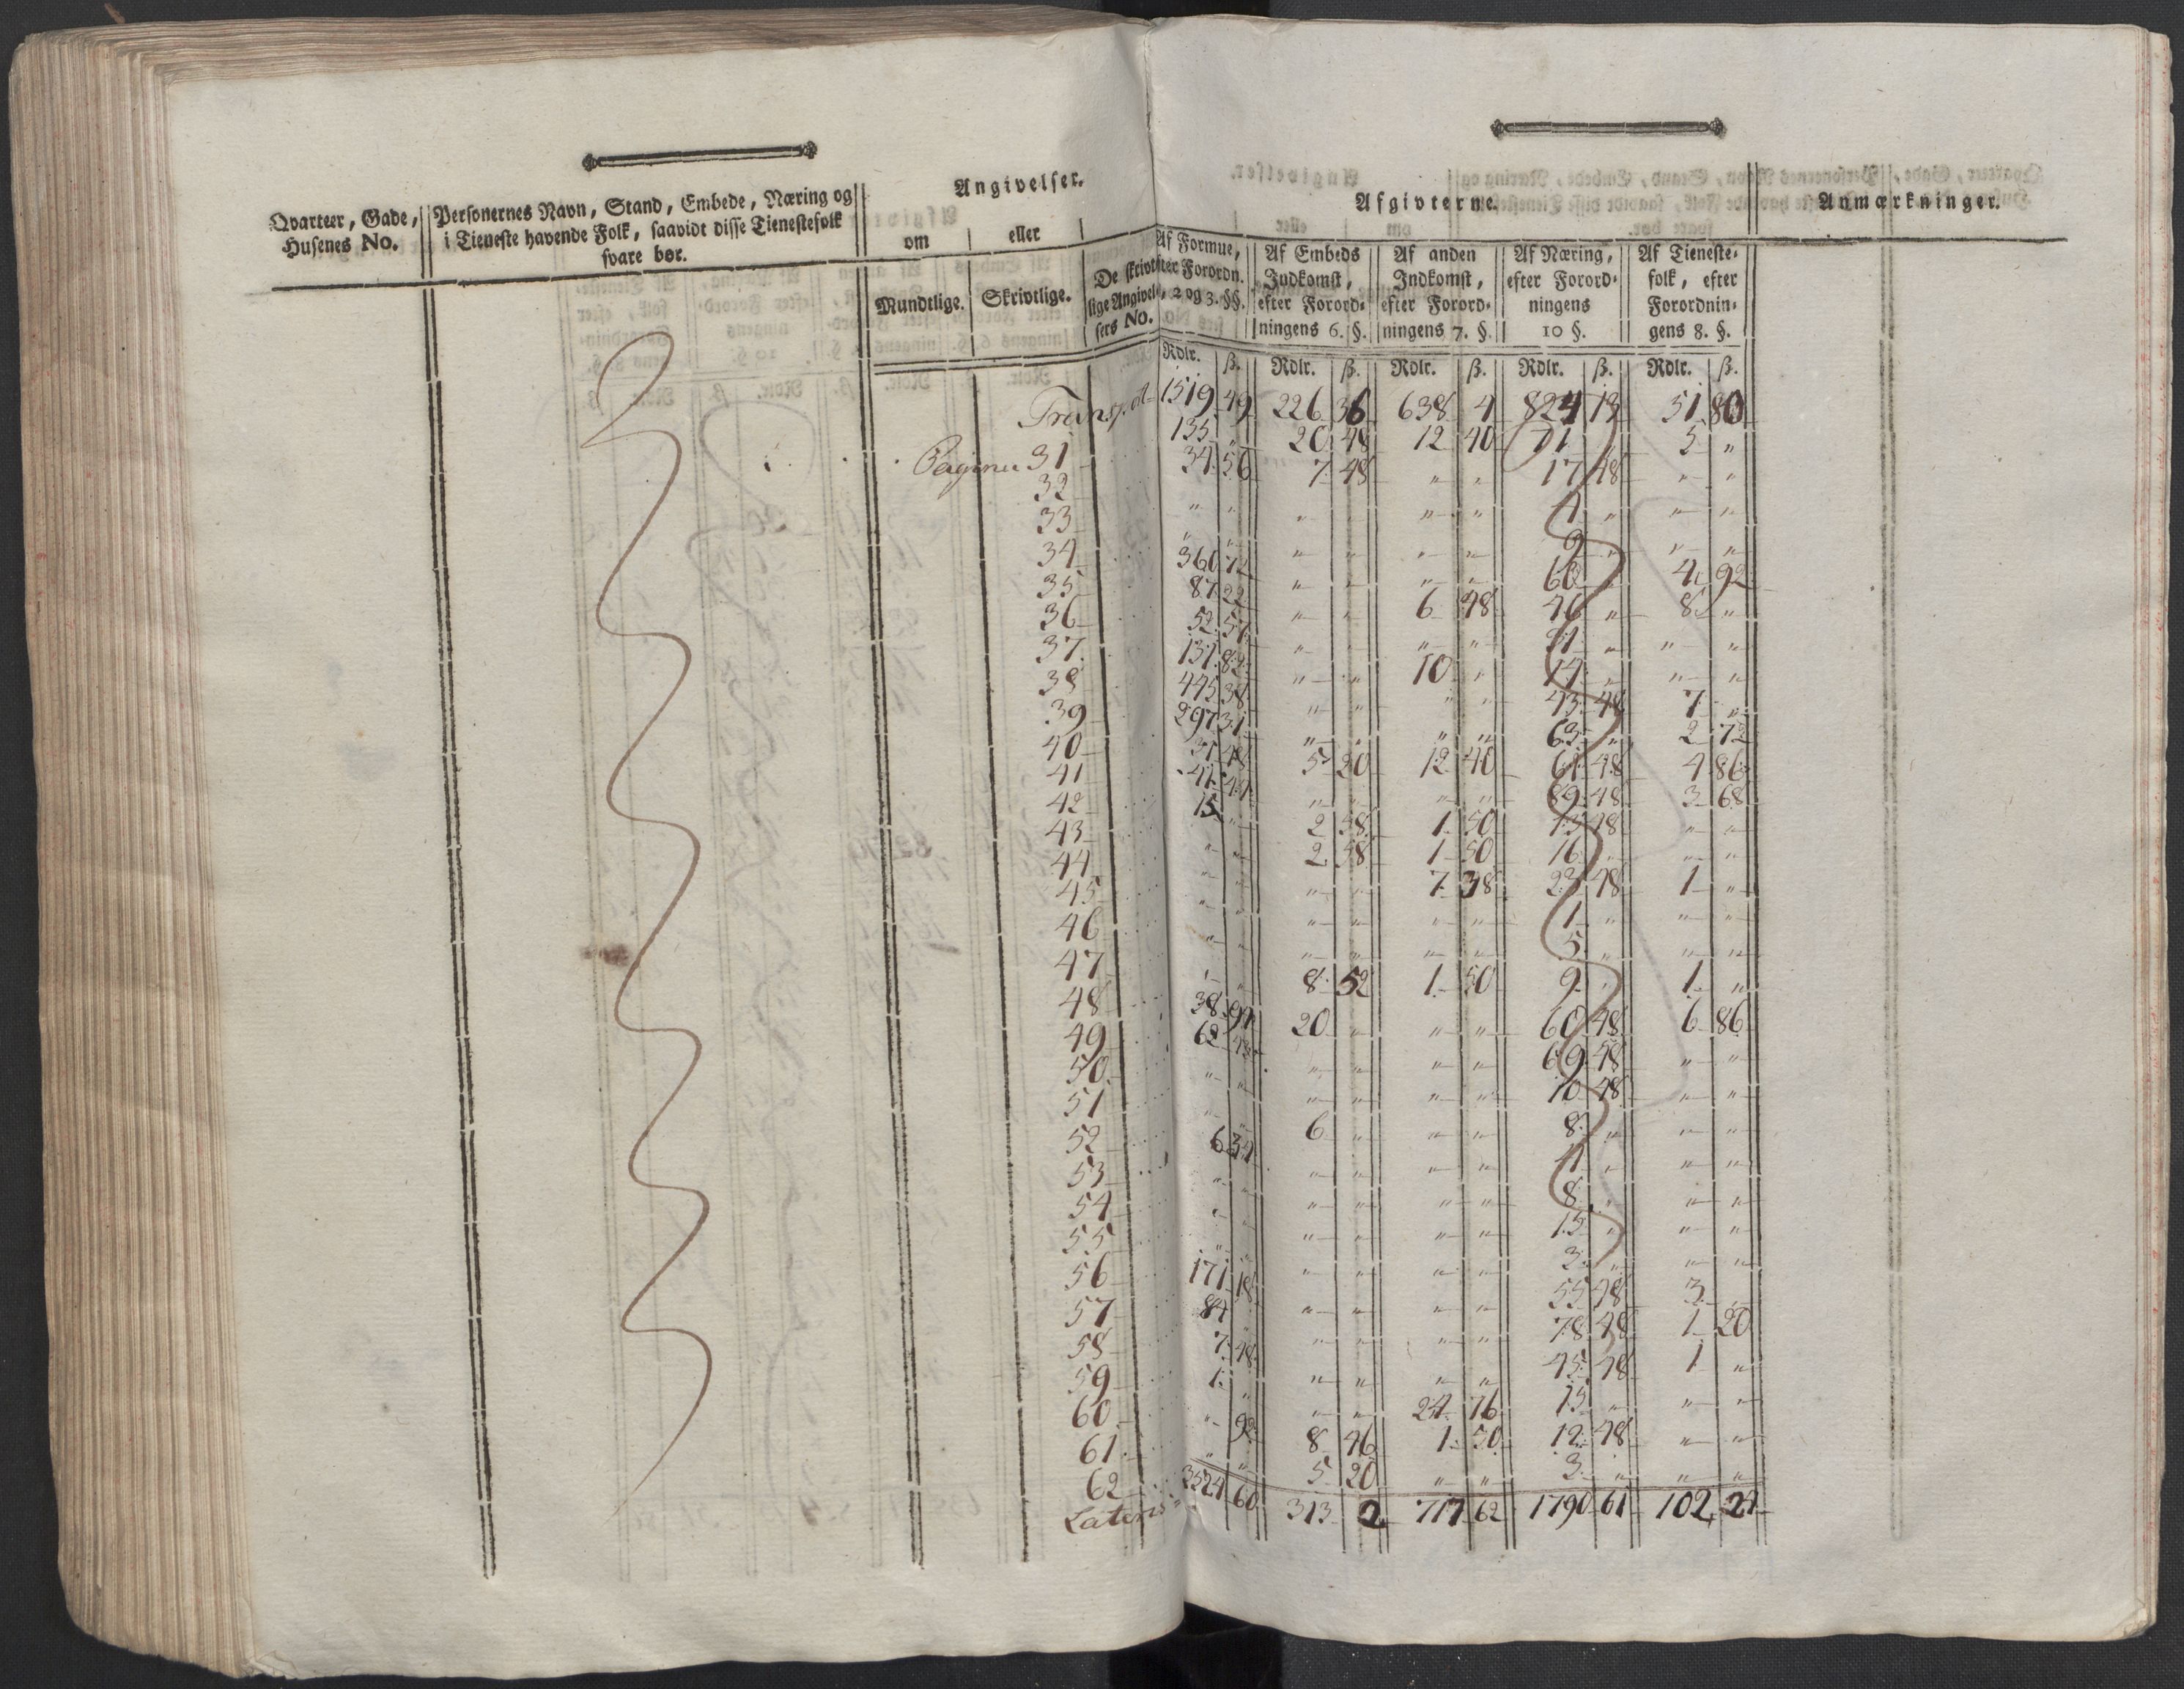 Angivelser.
Qvarteer, Gade, Husenes No.
Personernes Navn, Stand, Embede, Næring og i Tieneste havende Folk, saavidt disse Tienestefolk svare bør.
om eller
Mundtlige. Skrivtlige.
De skrivtlige Angivelsers No.
Afgivterne. Anmærkninger.
Af Formue, efter Forordn. 2 og 3. §§.
Af Embeds Indkomst, efter Forordningens 6. §.
Af anden Indkomst, efter Forordningens 7. §.
Af Næring, efter Forordningens 10 §.
Af Tienestefolk, efter Forordningens 8. §.
Rdlr. ß. Rdlr. ß. Rdlr. ß. Rdlr. ß. Rdlr. ß.
Transp. 1519 49 226 36 638 4 824 13 51 80
Pagina 31 135 „ 20 48 12 40 71 „ 5 „
32 34 56 7 48 „ „ 17 48 „ „
33 „ „ „ „ „ „ 4 „ „ „
34 „ „ „ „ „ „ 9 „ „ „
35 360 72 „ „ „ „ 60 „ 4 92
36 87 22 „ „ 6 48 46 „ 8 „
37 52 57 „ „ „ „ „ „ „
38 131 82 „ „ 10 „ 14 „ „ „
39 445 38 „ „ „ „ 43 48 7 „
40 297 31 „ „ „ „ 63 „ 2 72
41 31 48 5 20 12 40 61 48 4 86
42 41 „ „ „ „ 89 48 3 68
43 15 „ 2 58 1 50 13 48 „ „
44 „ „ 2 58 1 50 16 „ „ „
45 „ „ „ „ 7 38 23 48 1 „
46 „ „ „ „ „ „ 1 „ „ „
47 „ „ „ „ „ „ 5 „ „ „
48 „ „ 8 52 1 50 9 „ 1 „
49 38 94 20 „ „ „ 60 48 6 86
50 62 48 „ „ „ „ 69 48 „ „
51 „ „ „ „ „ „ 10 48 „ „
52 „ „ 6 „ „ „ 8 „ „ „
53 6 34 „ „ „ „ 4 „ „ „
54 „ „ „ „ „ „ 8 „ „ „
55 „ „ „ „ „ „ 15 „ „ „
56 „ „ „ „ „ „ 3 „ „ „
57 171 18 „ „ „ „ 55 48 3 „
58 84 „ „ „ „ „ 78 48 1 20
59 7 48 „ „ „ „ 45 48 1 „
60 1 „ „ „ 24 76 15 „ „ „
61 „ 92 8 46 1 50 12 48 „ „
62 „ „ 5 20 „ „ 3 „ „ „
Lateris 3524 60 313 2 717 62 1790 61 102 24